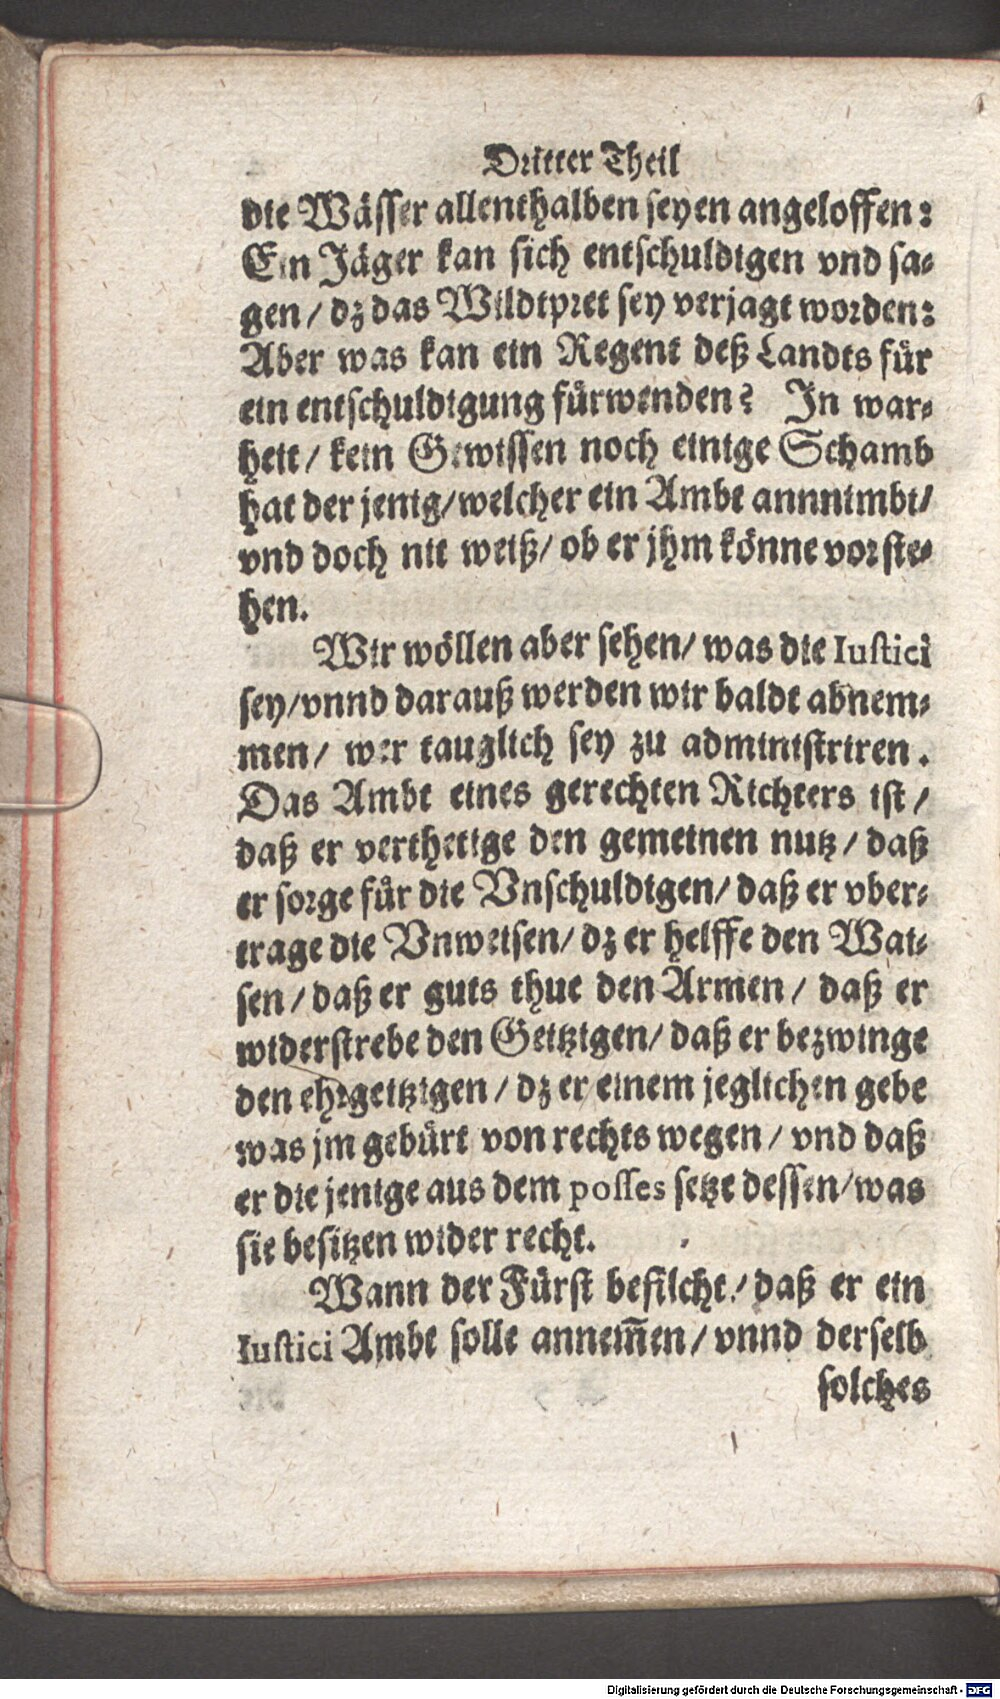 Dritter Theil
die Wässer allenthalben seyen angeloffen:
Ein Jäger kan sich entschuldigen vnd sa-
gen/ dz das Wildtpret sey verjagt worden:
Aber was kan ein Regent deß Landts für
ein entschuldigung fürwenden? In war-
heit/ kein Gewissen noch einige Schamb
hat der jenig/ welcher ein Ambt annnimbt/
vnd doch nit weiß/ ob er jhm könne vorste-
hen.
Wir wöllen aber sehen/ was die Iustici
sey/ vnnd darauß werden wir baldt abnem-
men/ wer tauglich sey zu administriren.
Das Ambt eines gerechten Richters ist/
daß er vertheitige den gemeinen nutz/ daß
er sorge für die Vnschuldigen/ daß er vber-
trage die Vnweisen/ dz er helffe den Wai-
sen/ daß er guts thue den Armen/ daß er
widerstrebe den Geitzigen/ daß er bezwinge
den ehrgeitzigen/ dz er einem jeglichen gebe
was jm gebürt von rechts wegen/ vnd daß
er die jenige aus dem posses setze dessen/ was
sie besitzen wider recht.
Wann der Fürst befilcht/ daß er ein
Iustici Ambt solle annem̃en/ vnnd derselb
solches
Digitalisierung gefördert durch die Deutsche Forschungsgemeinschaft - DFG